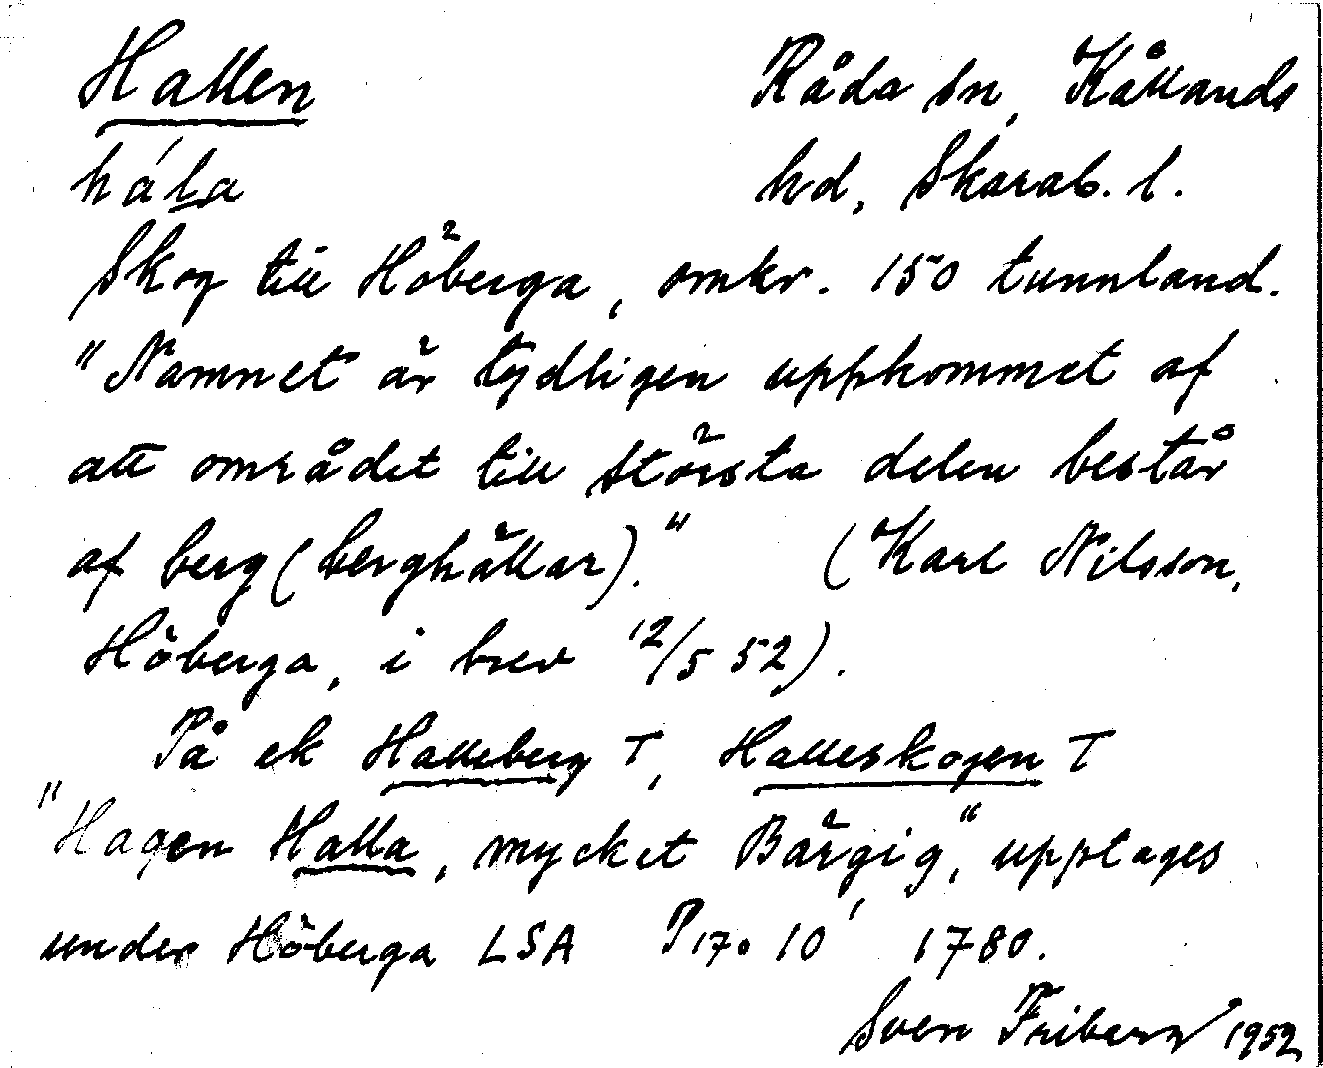 Hallen Råda sn, Kållands
hála hd, Skarab. l.
Skog till Höberga, omkr. 150 tunnland.
"Namnet är tydligen uppkommet af
att området till största delen består
af berg (berghällar)." (Karl Nilsson,
Höberga, i brev 12/5 52).
På ek Halleberg T, Halleskogen T
"Hagen Halla, mycket Bärgig", upptages
under Höberga LSA P 17:10 1780.
Sven Friberg 1952